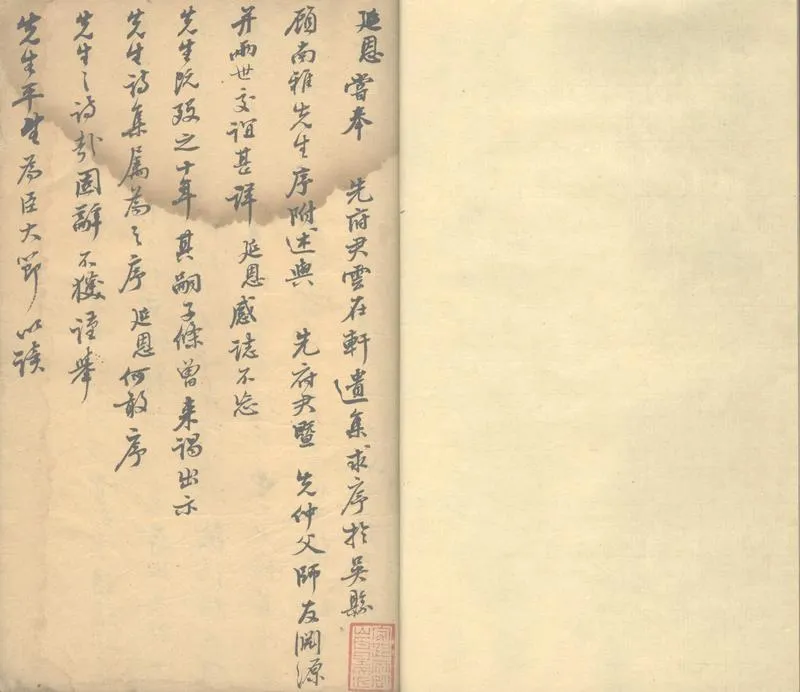 延恩嘗奉　先府君雲在軒遺集求序於吳縣
顧南雅先生序附述與　先府君暨　先仲父師友淵源
并兩世交誼甚詳延恩感誌不忘
先生既歿之十年其嗣子條曾來謁出示
先生詩集屬爲之序延恩何敢序
先生之詩哉固辭不獲謹舉
先生平生爲臣大節以諗